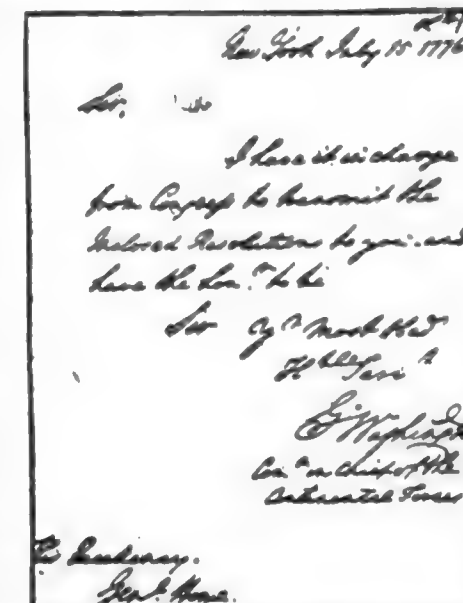 New York July 15 1776
Sir,
I have it in charge
from Congress to transmit the
Inclosed Resolutions to you: and
have the hon.r to be
Sir Yr Most Obed
H ble Serv t
Go Washington
Com.r in chief of the
Continental Forces
His Excellency.
Gen.l Howe.